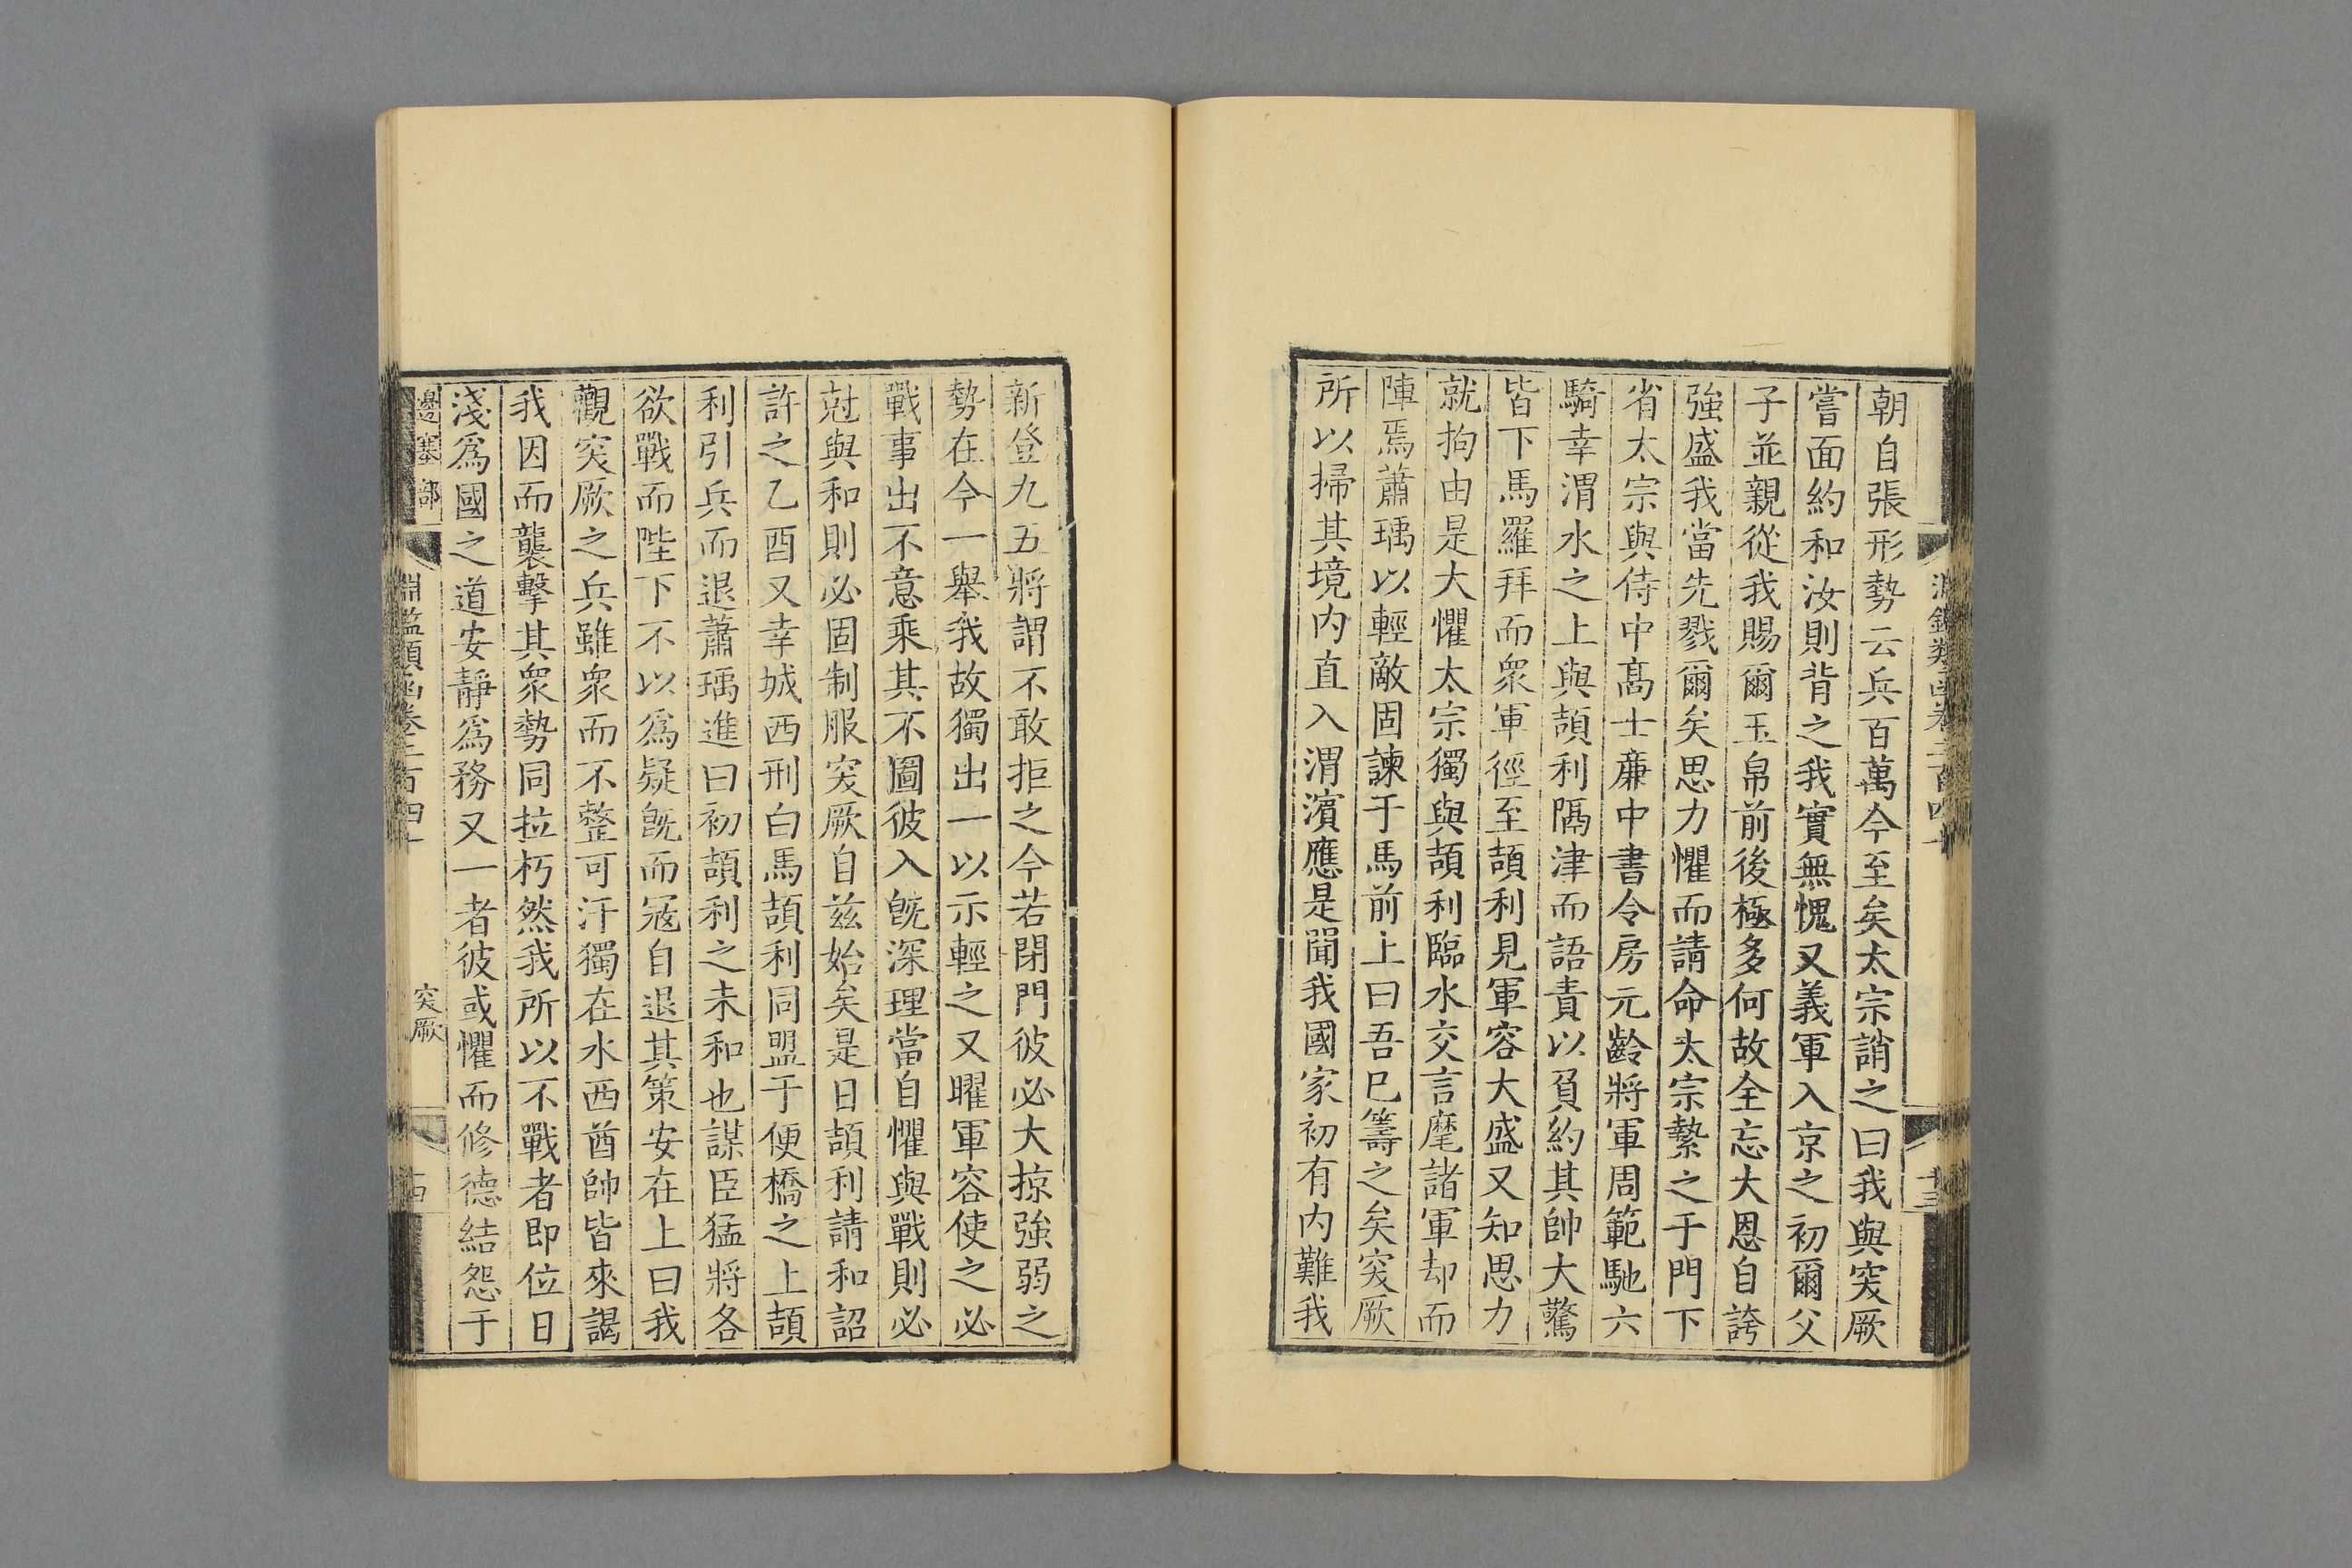 朝自張形勢云兵百萬今至矣太宗誚之曰我與突厥
嘗面約和汝則背之我實無愧又義軍入京之初爾父
子並親從我賜爾玉帛前後極多何故全忘大恩自誇
強盛我當先戮爾矣思力懼而請命太宗縶之于門下
省太宗與侍中髙士亷中書令房元齡將軍周範馳六
騎幸渭水之上與頡利隔津而語責以負約其帥大驚
皆下馬羅拜而衆軍徑至頡利見軍容大盛又知思力
就拘由是大懼太宗獨與頡利臨水交言麾諸軍却而
陣焉蕭瑀以輕敵固諫于馬前上曰吾已籌之矣突厥
所以掃其境内直入渭濱應是聞我國家初有内難我
新登九五將謂不敢拒之今若閉門彼必大掠強弱之
勢在今一舉我故獨出一以示輕之又曜軍容使之必
戰事出不意乘其不圖彼入旣深理當自懼與戰則必
尅與和則必固制服突厥自兹始矣是日頡利請和詔
許之乙酉又幸城西刑白馬頡利同盟于便橋之上頡
利引兵而退蕭瑀進曰初頡利之未和也謀臣猛將各
欲戰而陛下不以爲疑旣而冦自退其策安在上曰我
觀突厥之兵雖衆而不整可汗獨在水西酋帥皆來謁
我因而襲擊其衆勢同拉朽然我所以不戰者即位日
淺爲國之道安靜爲務又一者彼或懼而修德結怨于
邊塞部
淵鑑類函卷二百四十
突厥